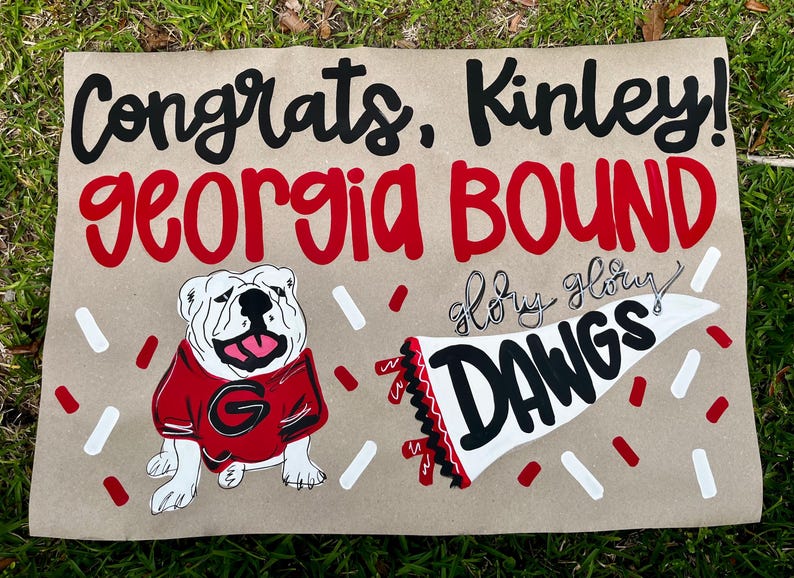 Congrats, Kinley!
georgia BOUND
glory glory
DAWGS
G